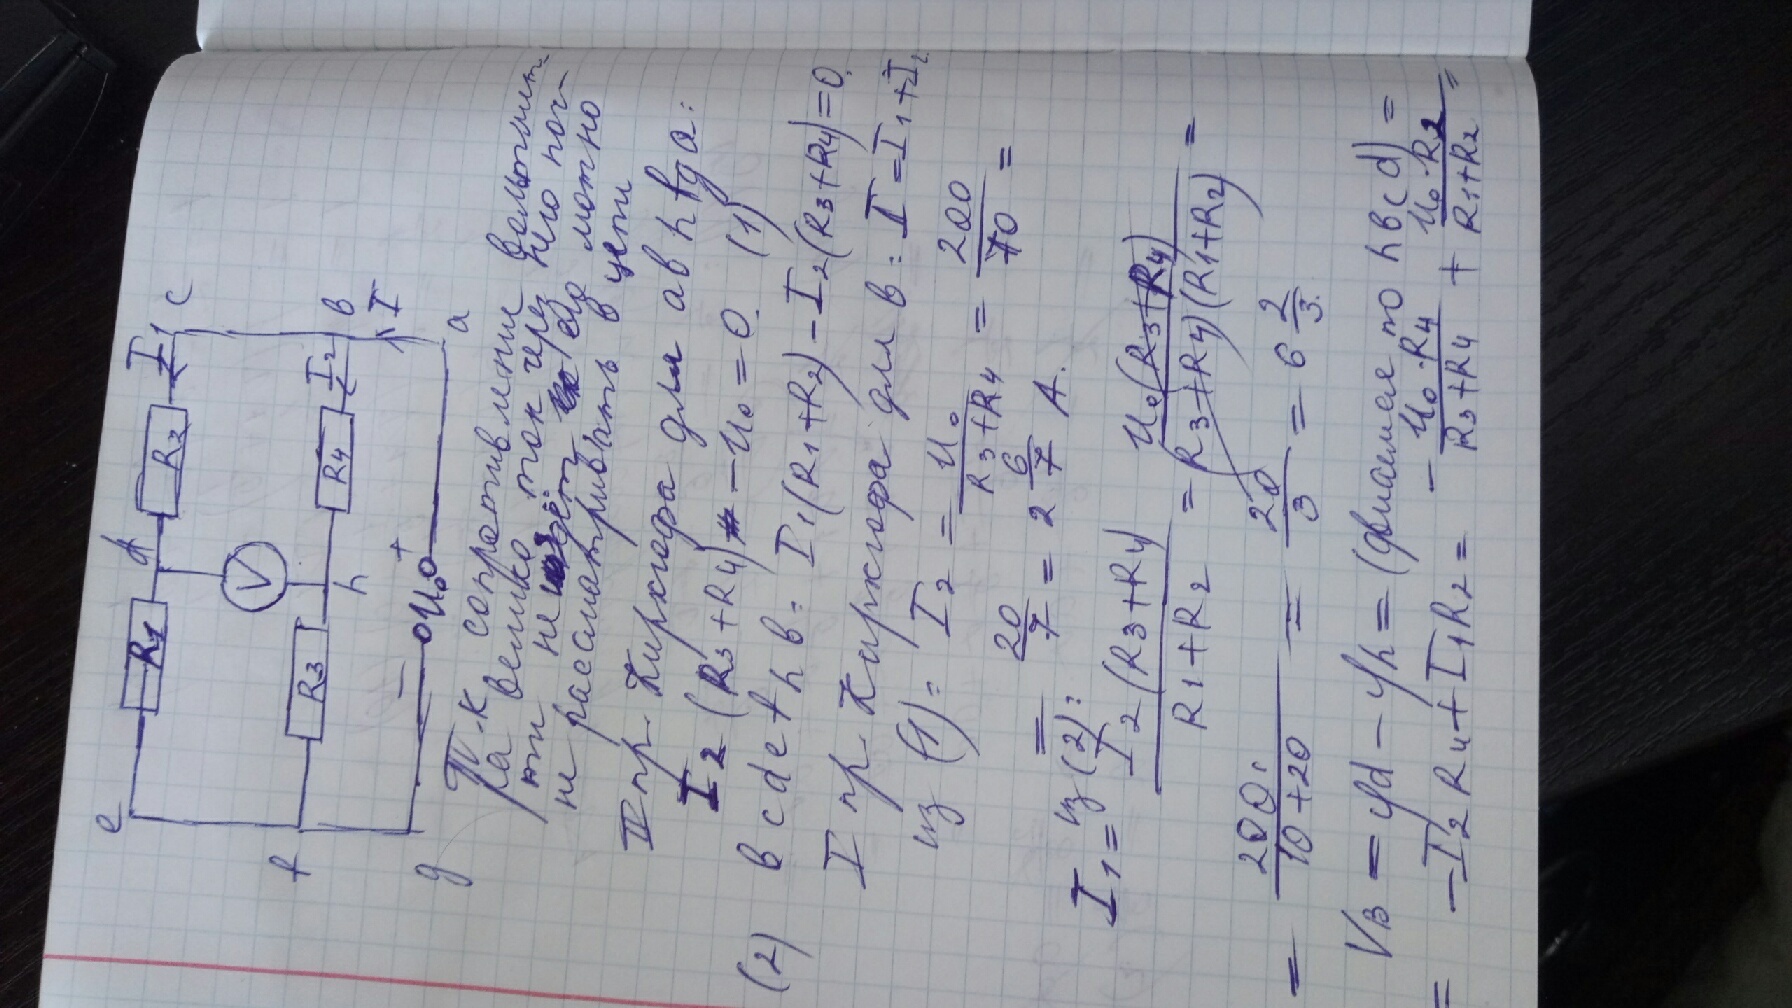 e
R1
d
R2
I1
c
V
f
R3
h
R4
I2
в
I
g
−
U₀
+
a
Т.к сопротивление вольтмет
ра велико ток через него поч-
ти не идёт его можно
не рассматривать в цепи
II пр. Кирхгофа для a в h f g a:
I₂(R₃+R₄) − U₀ = 0. (1)
(2) в c d e f h в: I₁(R₁+R₂) − I₂(R₃+R₄) = 0.
I пр Кирхгофа для в: I = I₁+I₂
из (1): I₂ = U₀/(R₃+R₄) = 200/70 =
= 20/7 = 2 6/7 A.
из (2):
I₁ = I₂(R₃+R₄)/(R₁+R₂) = U₀(R₃+R₄)/(R₃+R₄)(R₁+R₂) =
= 200/(10+20) = 20/3 = 6 2/3.
Vв = φd − φh = (двигаемся по h в c d) =
= −I₂R₄ + I₁R₂ = −U₀·R₄/(R₃+R₄) + U₀·R₂/(R₁+R₂) =